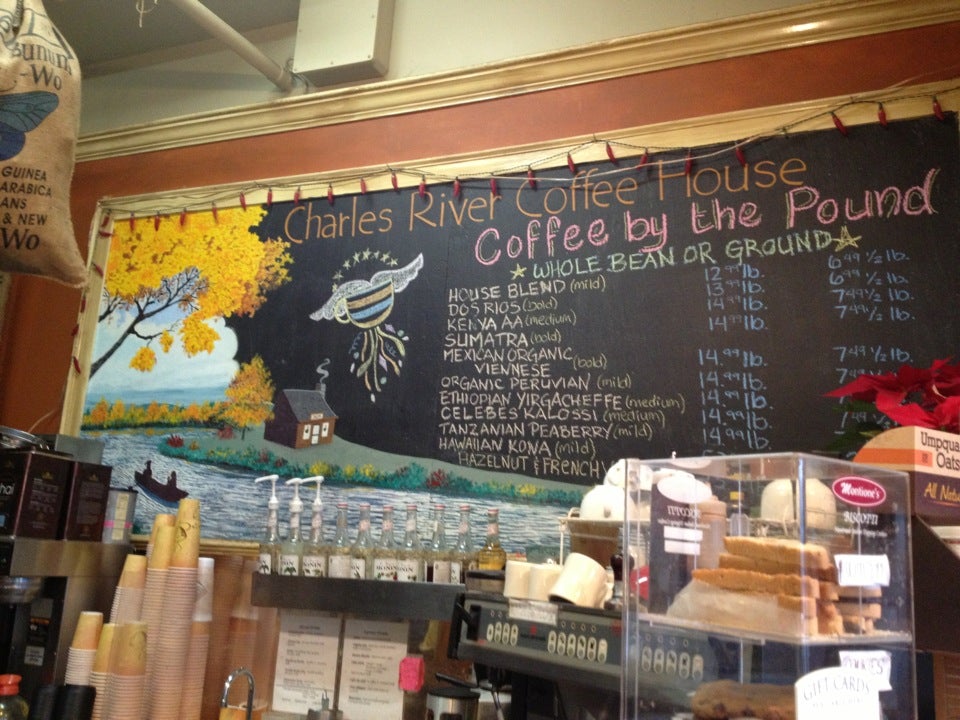 Wo
GUINEA
ARABICA
ANS
& NEW
Wo
Charles River Coffee House
Coffee by the Pound
WHOLE BEAN OR GROUND
HOUSE BLEND (mild) 12.99 lb. 6.49 ½ lb.
DOS RIOS (bold) 13.99 lb. 6.99 ½ lb.
KENYA AA (medium) 14.99 lb. 7.49 ½ lb.
SUMATRA (bold) 14.99 lb. 7.49 ½ lb.
MEXICAN ORGANIC
VIENNESE (bold) 14.99 lb. 7.49 ½ lb.
ORGANIC PERUVIAN (mild) 14.99 lb.
ETHIOPIAN YIRGACHEFFE (medium) 14.99 lb.
CELEBES KALOSSI (medium) 14.99 lb.
TANZANIAN PEABERRY (mild) 14.99 lb.
HAWAIIAN KONA (mild)
HAZELNUT & FRENCH
Umpqua
Oats
All Natu
Montione's
BISCOTTI
GIFT CARDS